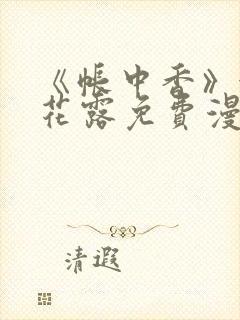 《帐中香》
花露免費漫
清遐